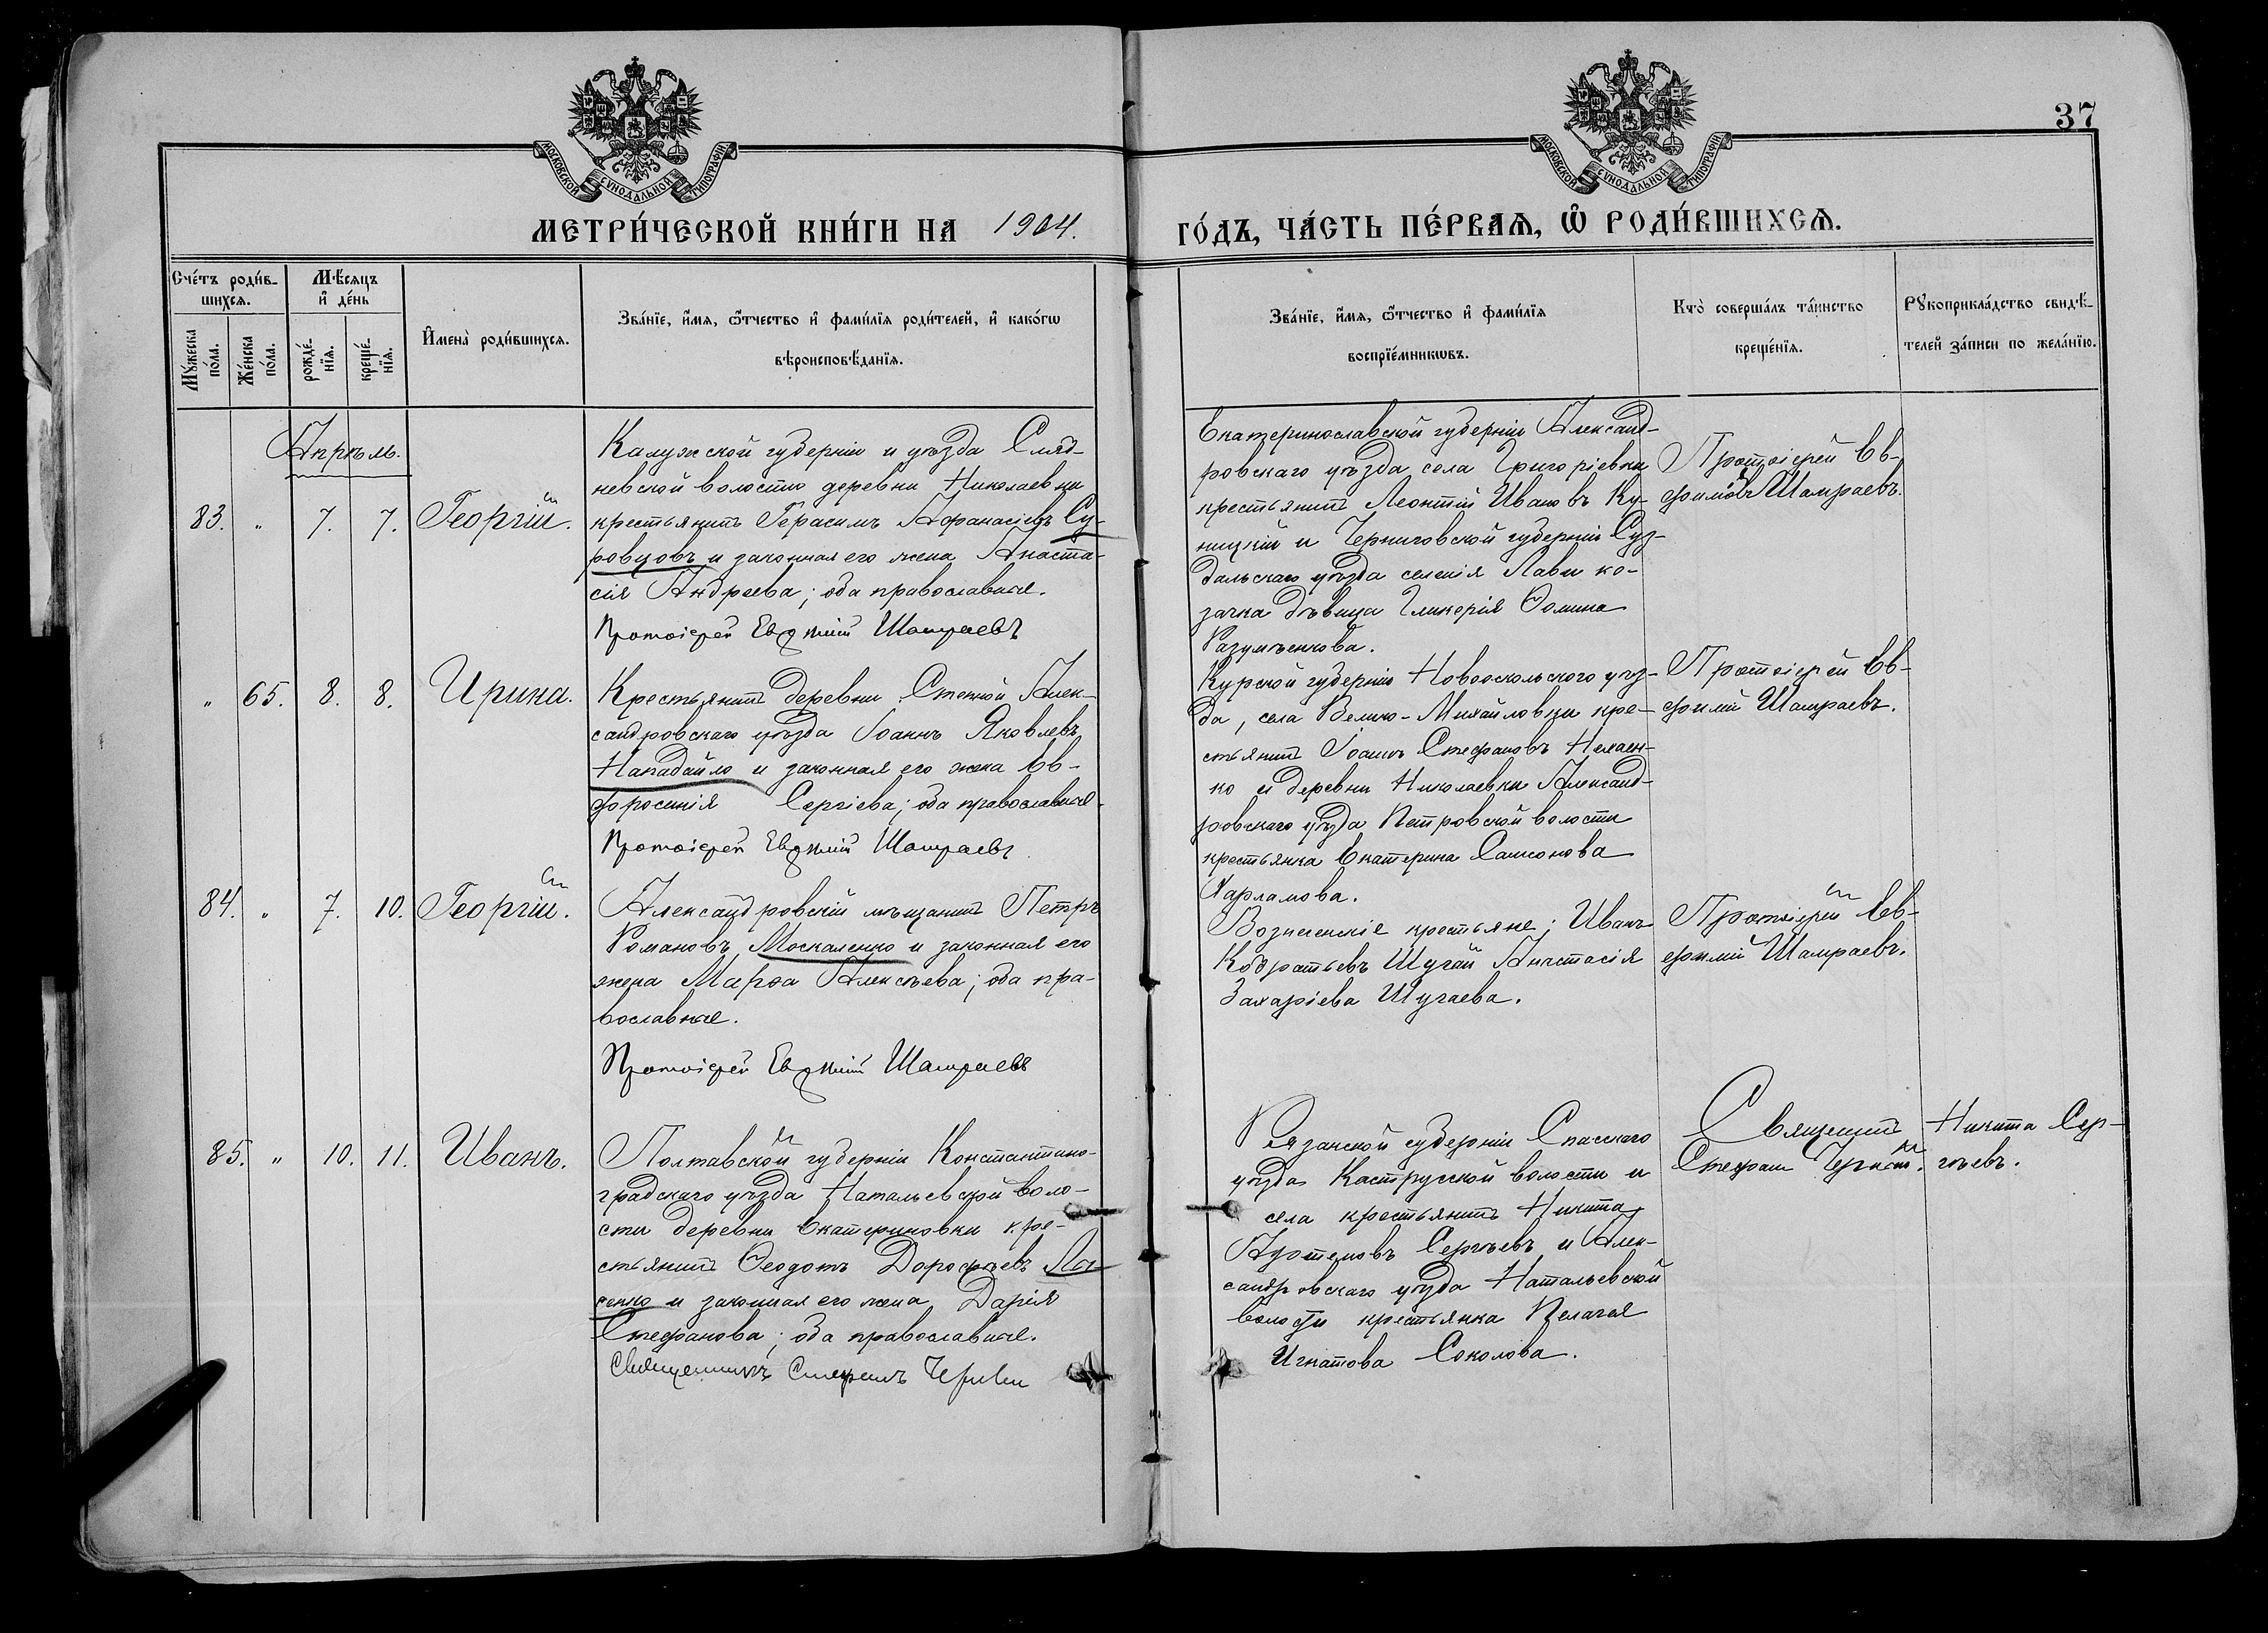 37
МОСКОВСКОЙ СѴНОДАЛЬНОЙ ТИПОГРАФІИ
МОСКОВСКОЙ СѴНОДАЛЬНОЙ ТИПОГРАФІИ
МЕТРИ́ЧЕСКОЙ КНИ́ГИ НА 1904.
ГО́ДЪ, ЧА́СТЬ ПЕ́РВАѦ, Ѡ҆ РОДИ́ВШИХСѦ.
Сче́тъ роди́в-
шихсѧ.
Мꙋ́жеска
по́ла.
Же́нска
по́ла.
Мѣ́сѧцъ
и҆ де́нь
рожде́-
нїѧ.
креще́-
нїѧ.
И҆мена̀ роди́вшихсѧ.
Зва́нїе, и҆́мѧ, ѻ҆́тчество и҆ фами́лїѧ роди́телей, и҆ како́гѡ
вѣроисповѣ́данїѧ.
Зва́нїе, и҆́мѧ, ѻ҆́тчество и҆ фами́лїѧ
воспрїе́мникѡвъ.
Кто̀ соверша́лъ та́инство
креще́нїѧ.
Рꙋкоприкла́дство свидѣ́-
телей за́писи по жела́нїю.
Апрѣль.
83. " 7. 7. Георгій.
Калужской губерніи и уѣзда Сляд-
невской волости деревни Николаевки
крестьянинъ Герасимъ Афанасіевъ Су-
ровцовъ и законная его жена Анаста-
сія Андреева; оба православные.
Протоіерей Евфимій Шамраевъ
Екатеринославской губерніи Александ-
ровскаго уѣзда села Григоріевки
крестьянинъ Леонтій Ивановъ Ку-
ницкій и Черниговской губерніи Суз-
дальскаго уѣзда селенія Лави ко-
зачка дѣвица Гликерія Ѳомина
Разумѣенкова.
Протоіерей Ев-
фимій Шамраевъ.
" 65. 8. 8. Ирина.
Крестьянинъ деревни Степной Алек-
сандровскаго уѣзда Іоаннъ Яковлевъ
Нападайло и законная его жена Ев-
фросинія Сергіева; оба православные.
Протоіерей Евфимій Шамраевъ
Курской губерніи Новооскольского уѣз-
да, села Велико-Михайловки кре-
стьянинъ Іоаннъ Стефановъ Нехаен-
ко и деревни Николаевки Александ-
ровскаго уѣзда Петровской волости
крестьянка Екатерина Самсонова
Харламова.
Протоіерей Ев-
фимій Шамраевъ.
84. " 7. 10. Георгій.
Александровскій мѣщанинъ Петръ
Романовъ Москаленко и законная его
жена Марѳа Алексѣева; оба пра-
вославные.
Протоіерей Евфимій Шамраевъ
Вознесенскіе крестьяне; Иванъ
Кодратьевъ Шугай Анастасія
Захаріева Шугаева.
Протоіерей Ев-
фимій Шамраевъ.
85. " 10. 11. Иванъ.
Полтавской губерніи Константино-
градскаго уѣзда Натальевской воло-
сти деревни Екатериновки кре-
стьянинъ Ѳеодотъ Дорофѣевъ Лы-
сенко и законная его жена Дарія
Стефанова; оба православные.
Священникъ Стефанъ
Рязанской губерніи Спасскаго
уѣзда волости и
села крестьянинъ Никита
Артемовъ Сергѣевъ и Алек-
сандровскаго уѣзда Натальевской
волости крестьянка Пелагея
Игнатова Соколова.
Священникъ
Стефанъ
Никита Сер-
гѣевъ.